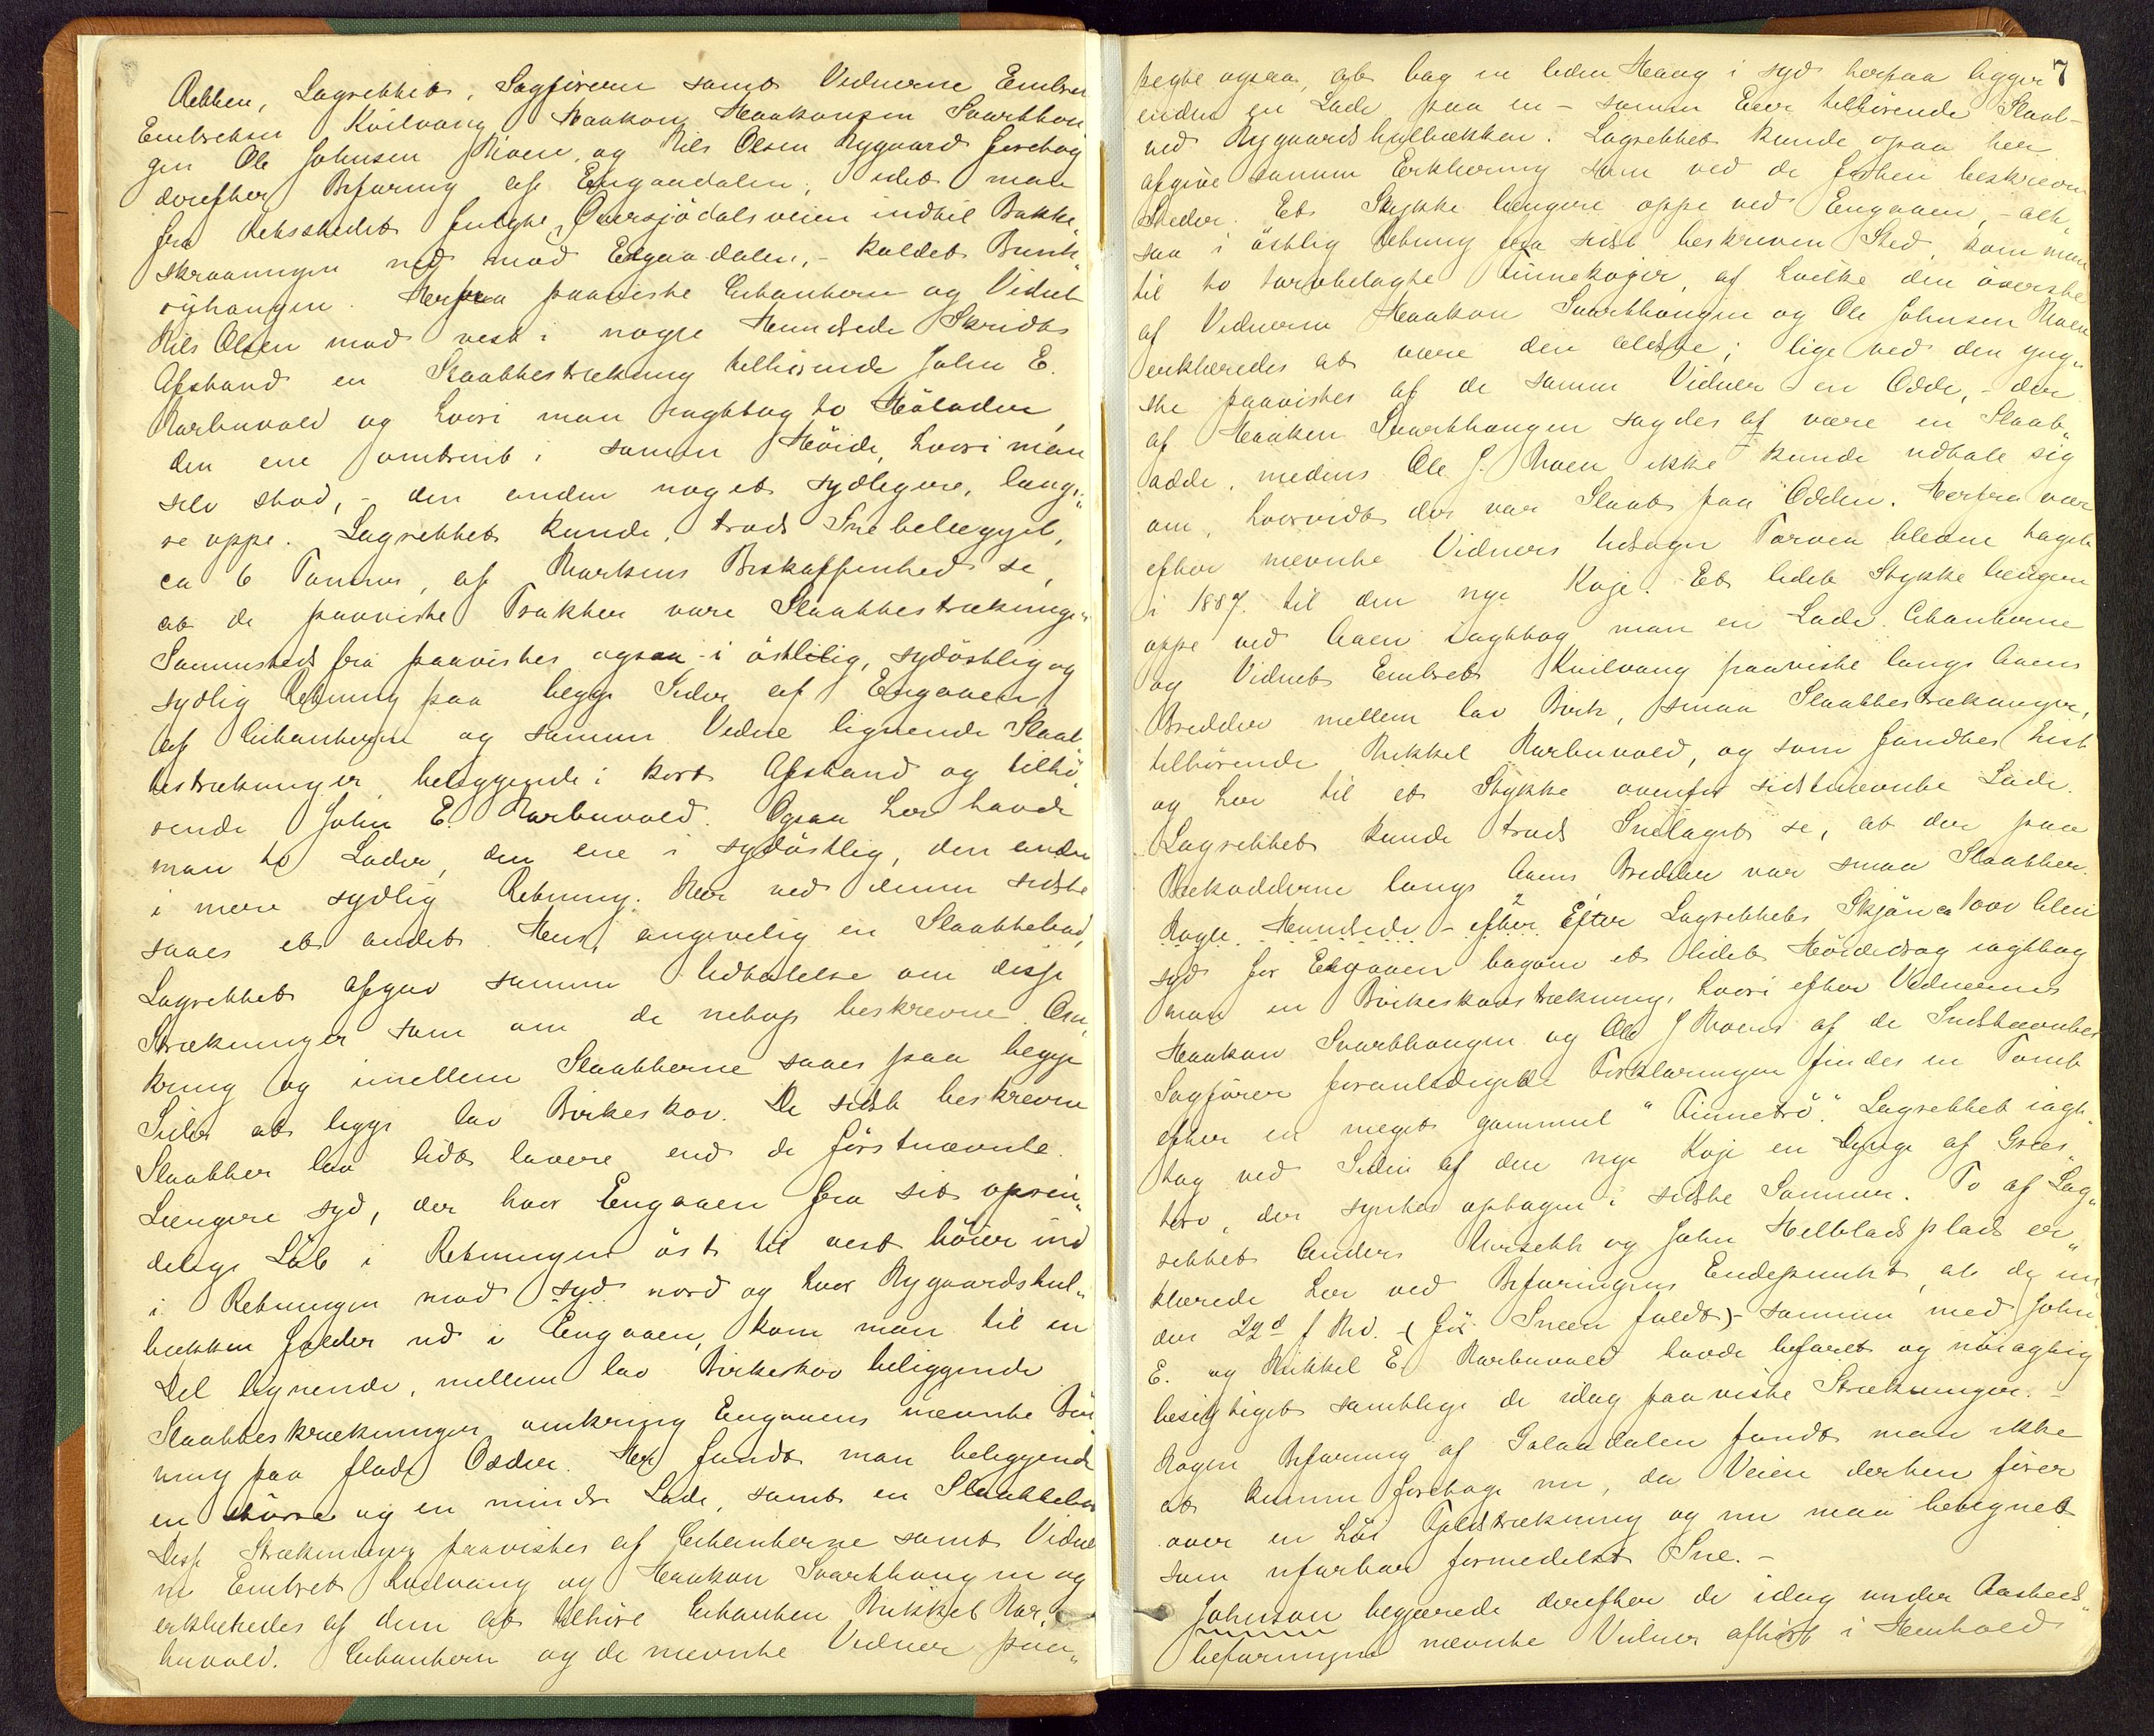 Retten, Lagrettet, Sagførerne samt Vidnerne Embret
Embretsen Kvilvang Haakon Haakonsen Svarthau
gen Ole Johnsen Moen, og Nils Olsen Nygaard foretog
derefter Befaring af Engaadalen; idet man
fra Retsstedet fulgte Øversjødalsveien indtil Bakke„
skraaningen ned mod Engaadalen, - kaldet Bunk„
röhaugen. Herfra paaviste Citanterne og Vidnet
Nils Olsen mod vest i nogle Hundrede Skridts
Afstand en Slaattestrækning tilhørende John E.
Narbuvold og hvori man iagttog to Hölader,
den ene omtrent i samme Höide, hvori man
selv stod, - den anden noget sydligere, læng„
re oppe. Lagrettet kunde, trods Snebelægget,
ca 6 Tommer, af Markens Beskaffenhed se,
at de paaviste Trakter vare Slaattestrækninge„
Sammesteds fra paavistes ogsaa i östlilig, sydöstlig og
sydlig Retning paa begge Sider af Engaaen
af Citanterne og samme Vidne lignende Slaat
testrækninger, beliggende i kort Afstand og tilhö
rende John E. Narbuvold. Ogsaa her havde
man to Lader, den ene i sydöstlig, den anden
i mere sydlig Retning. Nær ved denne sidste
saaes et andet Hus, angivelig en Slaattebod,
Lagrettet afgav samme Udtalelse om disse
Strækninger som om de netop beskrevne. Om„
kring og imellem Slaatterne saaes paa begge
Sider at ligge lav Birkeskov. De sidst beskrevne
Slaatter laa lidt lavere end de förstnævnte.
Længere syd, der hvor Engaaen fra sit oprin„
delige Löb i Retningen öst til vest böier ind
i Retningen mod syd nord og hvor Nygaardshul„
bækken falder ud i Engaaen, kom man til en
Del lignende, mellem lav Birkeskov beliggende
Slaattestrækninger omkring Engaaens nævnte Böi
ning paa flade Odder. Her fandt man beliggende
en större og en mindre Lade, samt en Slaattebod
Disse Strækninger paavistes af Citanterne samt Vidner
ne Embret Kvilvang og Haakon Svarthaugen og
erklæredes af dem at tilhöre Citanten Mikkel Nar„
buvold. Citanten og de nævnte Vidner paa„
7
pegte ogsaa, at bag en liden Haug i syd herfra ligger
endnu en Lade paa en - samme Eier tilhörende Slaat-
ved Nygaardshulbækken. Lagrettet kunde ogsaa her
afgive samme Erklæring som ved de forhen beskrevne
Steder. Et Stykke længere oppe ved Engaaen, - alt„
saa i östlig Retning fra sidst beskrevne Sted, kom man
til to torvbelagte Finnekojer, af hvilke den överste
af Vidnerne Haakon Svarthaugen og Ole Johnsen Moen
erklæredes at være den ældste; lige ved den yng„
ste paavistes af de samme Vidner en Odde, - der
af Haakon Svarthaugen sagdes at være en Slaat„
odde, medens Ole J. Moen ikke kunde udtale sig
om, hvorvidt der var Slaat paa Odden. Herfra var
efter nævnte Vidners Udsagn Torven bleven taget
i 1887 til den nye Koje. Et lidet Stykke længere
oppe ved Aaen iagttog man en Lade. Citanterne
og Vidnet Embret Kvilvang paaviste langs Aaens
Bredder mellem lav Birk, smaa Slaattestrækninger,
tilhørende Mikkel Narbuvold, og som fandtes hist
og her til et Stykke ovenfor sidstnævnte Lade.
Lagrettet kunde trods Snelaget se, at der paa
Bækodderne langs Aaens Bredder var smaa Slaatter.
Nogle Hundrede - efter Efter Lagrettets Skjön ca 1000 Alen
syd for Engaaen bagom et lidet Höidedrag iagttog
man en Birkeskovstrækning, hvori efter Vidnernes
Haakon Svarthaugen og Ole J Moens af de Indstævntes
Sagförer foranledigede Forklaringer findes en Tomt
efter en meget gammel "Finnetrö". Lagrettet iagt„
tog ved Siden af den nye Koje en Dynge af Græs„
torv, der syntes optagen i sidste Sommer. To af Lag„
rettet Anders Aursett og John Helbladsplads er„
klærede her ved Befaringens Endepunkt, at de nu
den 22d f Md. - (för Sneen faldt) - sammen med John
E. og Mikkel E. Narbuvold havde befaret og nöiagtig
besigtiget samtlige de idag paaviste Strækninger. -
Nogen Befaring af Galaadalen fandt man ikke
at kunne foretage nu, da Veien derhen förer
over en höi Fjeldstrækning og nu maa betegnes
som ufarbar formedelst Sne. -
Johnson begjærede derefter de idag under Aasteds„
befaringen nævnte Vidner afhört i Henhold